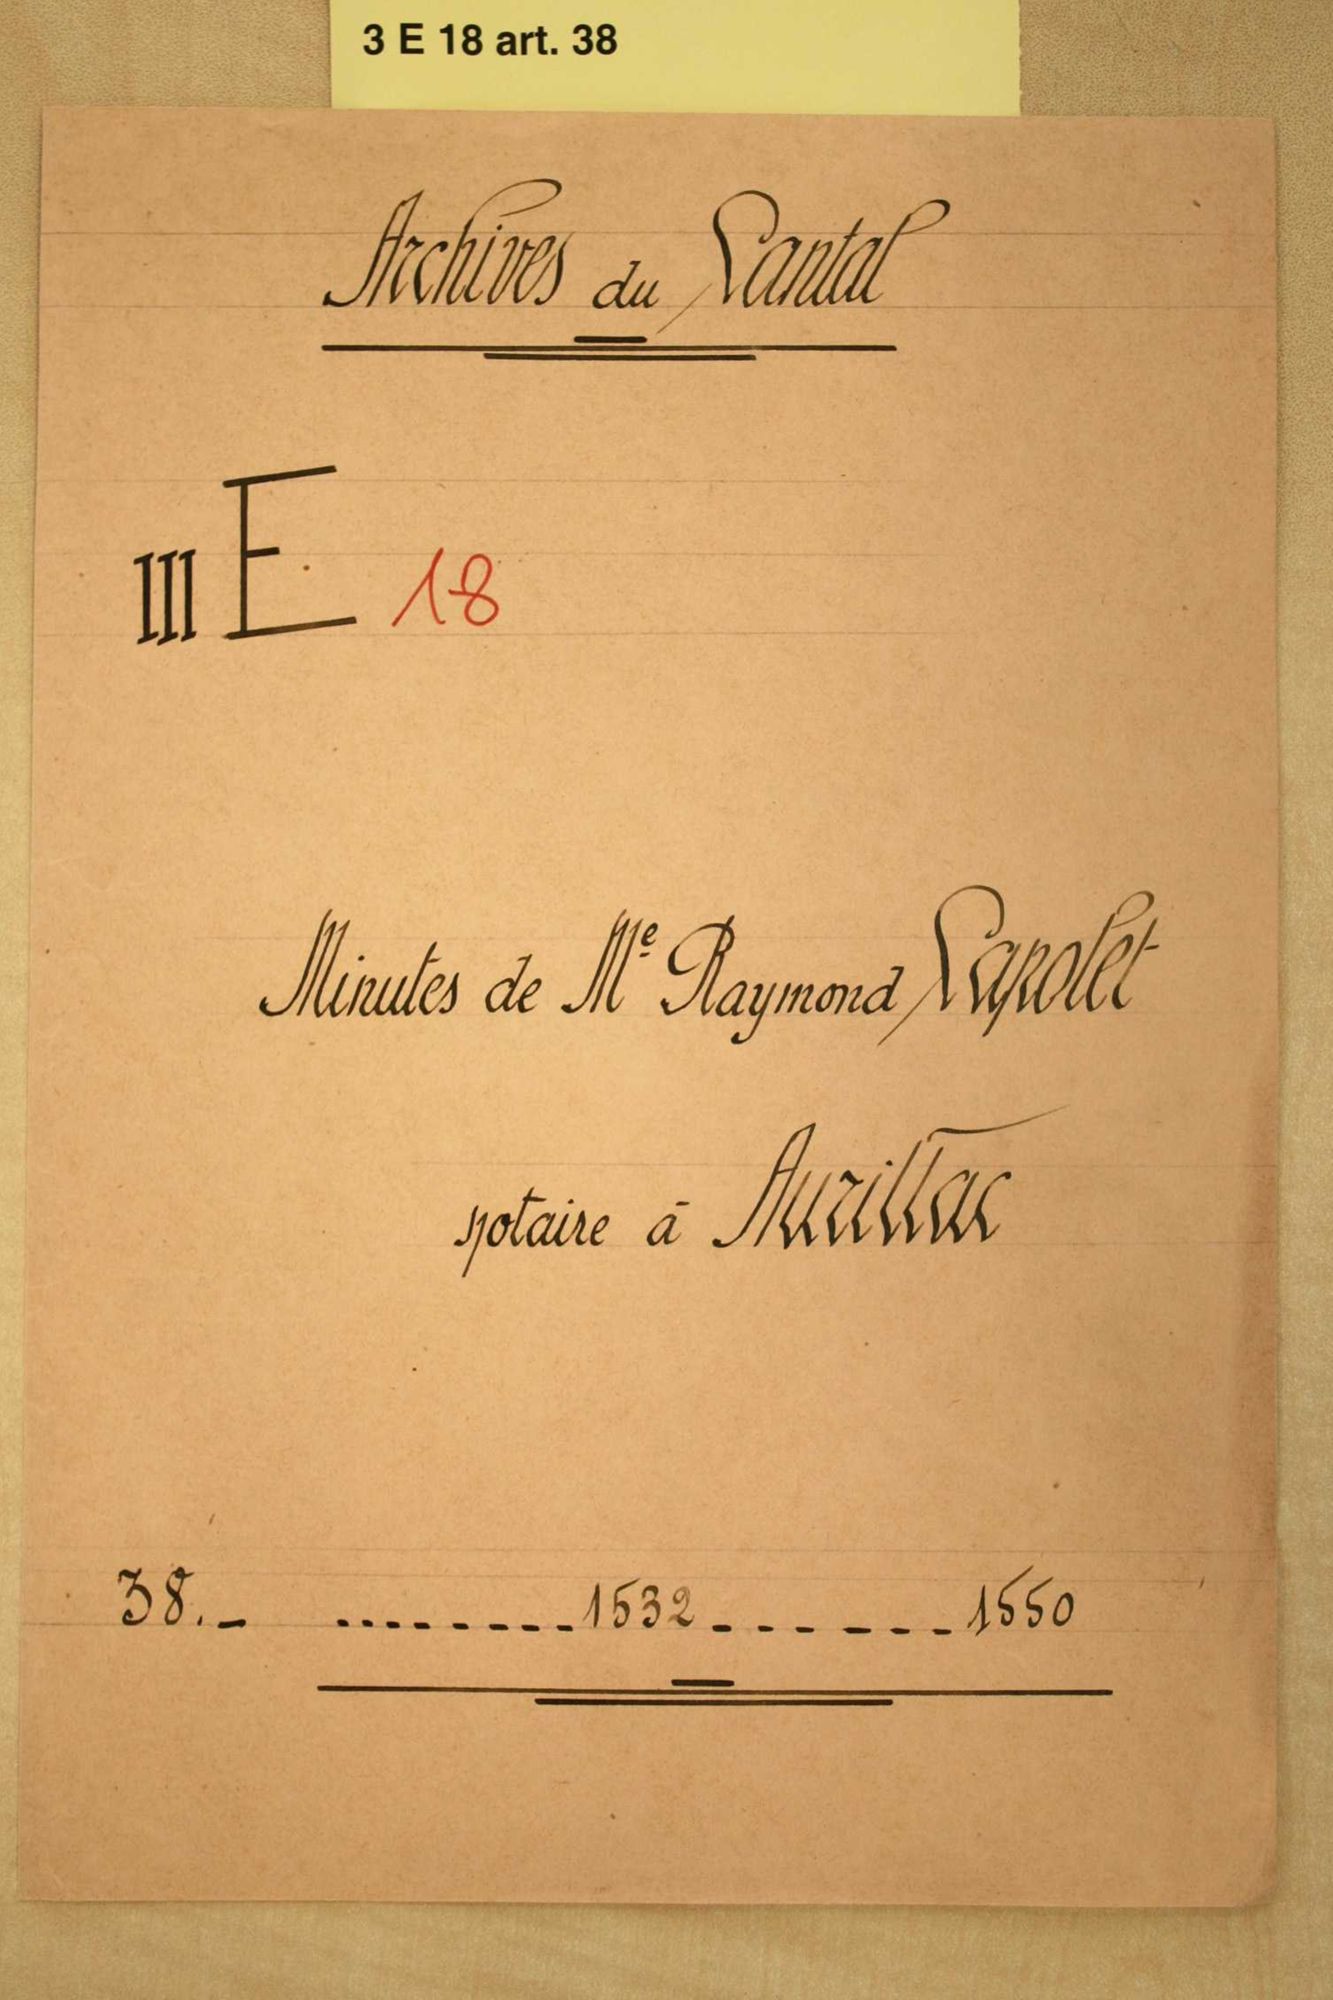 3 E 18 art. 38
Archives du Cantal
III E 18
Minutes de Mᵉ Raymond Capolet
notaire à Aurillac
38._ ......... 1532 _ _ _ _ _ _ _ 1550